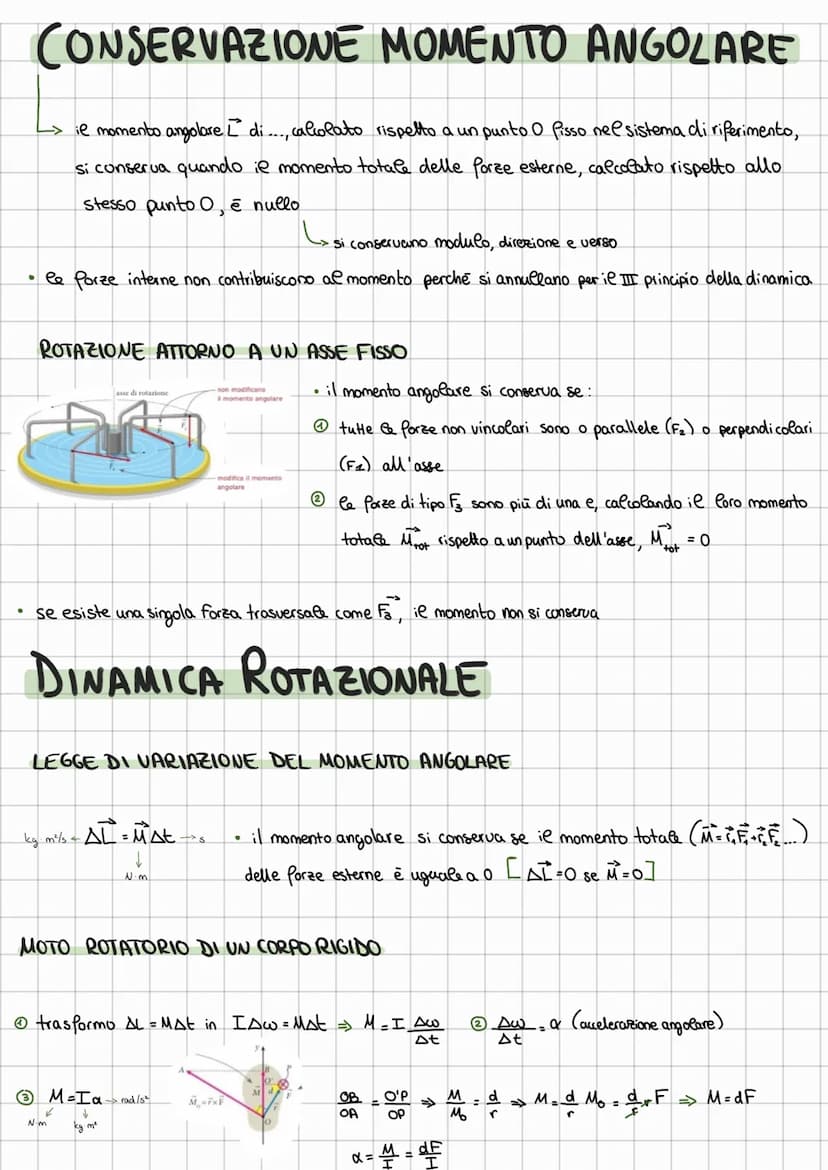 CONSERVAZIONE MOMENTO ANGOLARE
il momento angolare L⃗ di ..., calcolato rispetto a un punto O fisso nel sistema di riferimento,
si conserva quando il momento totale delle forze esterne, calcolato rispetto allo
stesso punto O, è nullo
↳ si conservano modulo, direzione e verso
• le forze interne non contribuiscono al momento perché si annullano per il III principio della dinamica
ROTAZIONE ATTORNO A UN ASSE FISSO
asse di rotazione
non modificano
il momento angolare
modifica il momento
angolare
• il momento angolare si conserva se :
① tutte le forze non vincolari sono o parallele (F₂) o perpendicolari
(F₁) all'asse
② le forze di tipo F₃ sono più di una e, calcolando il loro momento
totale M⃗tot rispetto a un punto dell'asse, M⃗tot = 0
• se esiste una singola forza trasversale come F₃⃗, il momento non si conserva
DINAMICA ROTAZIONALE
LEGGE DI VARIAZIONE DEL MOMENTO ANGOLARE
kg m²/s ← ΔL⃗ = M⃗Δt → s
↓
N·m
• il momento angolare si conserva se il momento totale (M⃗ = r⃗₁F⃗₁+r⃗₂F⃗₂ ...)
delle forze esterne è uguale a 0 [ΔL⃗=0 se M⃗=0]
MOTO ROTATORIO DI UN CORPO RIGIDO
① trasformo ΔL = MΔt in IΔω = MΔt ⇒ M = I Δω/Δt ② Δω/Δt = α (accelerazione angolare)
③ M = Iα → rad/s²
N·m kg m²
y
A
B
P
O'
M⃗
d
F⃗
r⃗
M⃗₀ = r⃗×F⃗
O
OB/OA = O'P/OP ⇒ M/M₀ = d/r ⇒ M = d/r M₀ = d/r rF ⇒ M = dF
α = M/I = dF/I